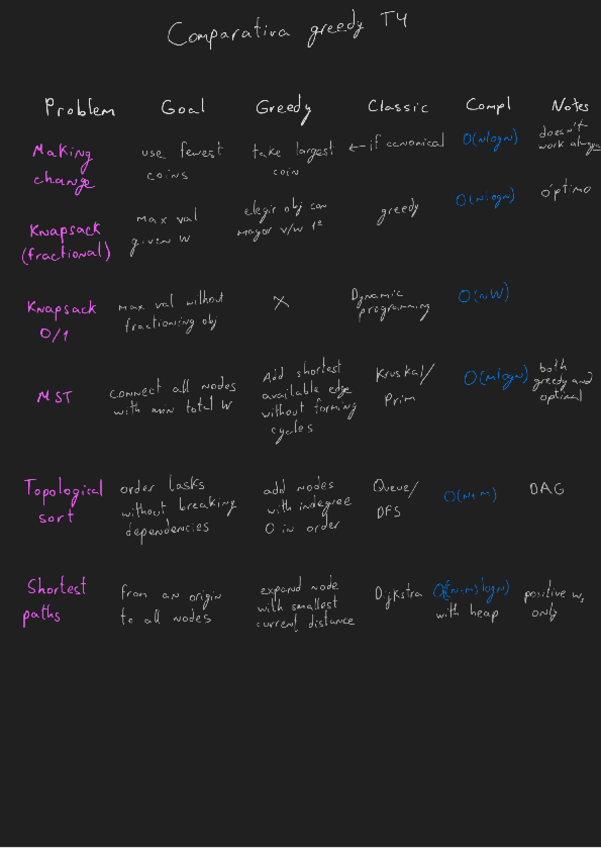 Comparativa greedy T4
Problem Goal Greedy Classic Compl Notes
Making change
use fewest coins
take largest coin
← if canonical
O(nlogn)
doesn't work always
Knapsack (fractional)
Max val given W
elegir obj con mayor v/w 1º
greedy
O(nlogn)
óptimo
Knapsack 0/1
max val without fractioning obj
X
Dynamic programming
O(nW)
MST
connect all nodes with min total W
Add shortest available edge without forming cycles
Kruskal/ Prim
O(mlogn)
both greedy and optimal
Topological sort
order tasks without breaking dependencies
add nodes with indegree 0 in order
Queue/ DFS
O(n+m)
DAG
Shortest paths
from an origin to all nodes
expand node with smallest current distance
Dijkstra
O((n+m)logn) with heap
positive w, only